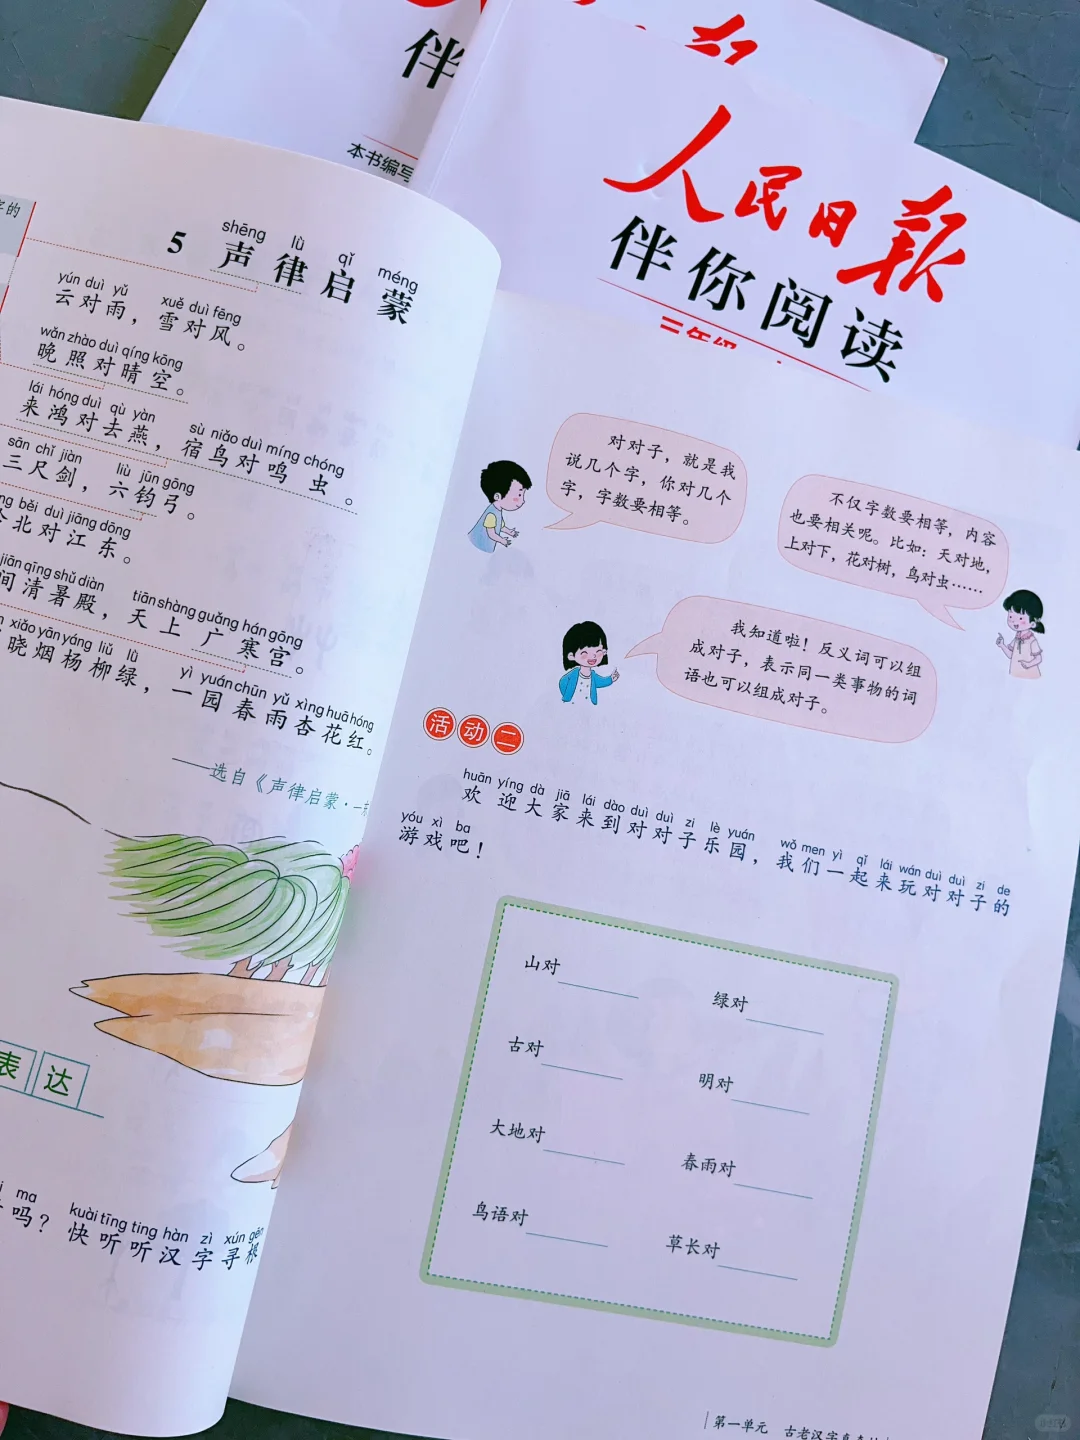 伴
本书编写
人民日报
伴你阅读
三年级
字的
shēng lǜ qǐ méng
5 声律启蒙
yún duì yǔ xuě duì fēng
云对雨，雪对风。
wǎn zhào duì qíng kōng
晚照对晴空。
lái hóng duì qù yàn sù niǎo duì míng chóng
来鸿对去燕，宿鸟对鸣虫。
sān chǐ jiàn liù jūn gōng
三尺剑，六钧弓。
běi duì jiāng dōng
北对江东。
jiān qīng shǔ diàn tiān shàng guǎng hán gōng
间清暑殿，天上广寒宫。
xiǎo yān yáng liǔ lǜ yì yuán chūn yǔ xìng huā hóng
晓烟杨柳绿，一园春雨杏花红。
——选自《声律启蒙·一
表达
ma kuài tīng ting hàn zì xún gēn
吗？快听听汉字寻根
对对子，就是我
说几个字，你对几个
字，字数要相等。
不仅字数要相等，内容
也要相关呢。比如：天对地，
上对下，花对树，鸟对虫……
我知道啦！反义词可以组
成对子，表示同一类事物的词
语也可以组成对子。
活动二
huān yíng dà jiā lái dào duì duì zi lè yuán wǒ men yì qǐ lái wán duì duì zi de
欢迎大家来到对对子乐园，我们一起来玩对对子的
yóu xì ba
游戏吧！
山对
绿对
古对
明对
大地对
春雨对
鸟语对
草长对
第一单元 古老汉字真